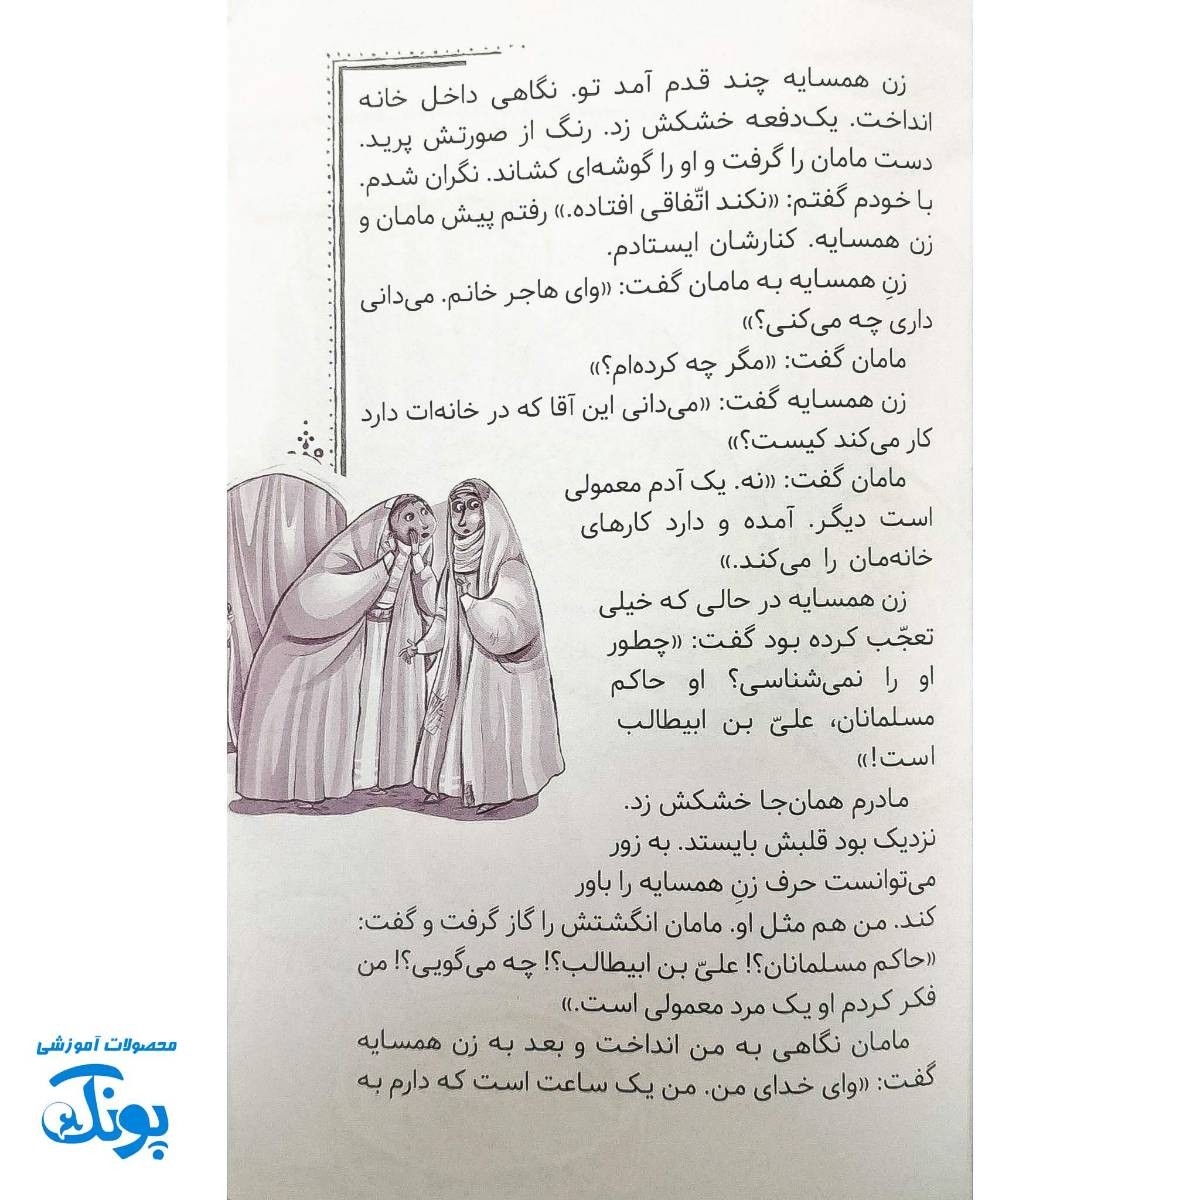 زن همسایه چند قدم آمد تو. نگاهی داخل خانه
انداخت. یک‌دفعه خشکش زد. رنگ از صورتش پرید.
دست مامان را گرفت و او را گوشه‌ای کشاند. نگران شدم.
با خودم گفتم: «نکند اتّفاقی افتاده.» رفتم پیش مامان و
زن همسایه. کنارشان ایستادم.
زنِ همسایه به مامان گفت: «وای هاجر خانم. می‌دانی
داری چه می‌کنی؟»
مامان گفت: «مگر چه کرده‌ام؟»
زن همسایه گفت: «می‌دانی این آقا که در خانه‌ات دارد
کار می‌کند کیست؟»
مامان گفت: «نه. یک آدم معمولی
است دیگر. آمده و دارد کارهای
خانه‌مان را می‌کند.»
زن همسایه در حالی که خیلی
تعجّب کرده بود گفت: «چطور
او را نمی‌شناسی؟ او حاکم
مسلمانان، علیّ بن ابیطالب
است!»
مادرم همان‌جا خشکش زد.
نزدیک بود قلبش بایستد. به زور
می‌توانست حرف زنِ همسایه را باور
کند. من هم مثل او. مامان انگشتش را گاز گرفت و گفت:
«حاکم مسلمانان؟! علیّ بن ابیطالب؟! چه می‌گویی؟! من
فکر کردم او یک مرد معمولی است.»
مامان نگاهی به من انداخت و بعد به زن همسایه
گفت: «وای خدای من. من یک ساعت است که دارم به
محصولات آموزشی
پونک